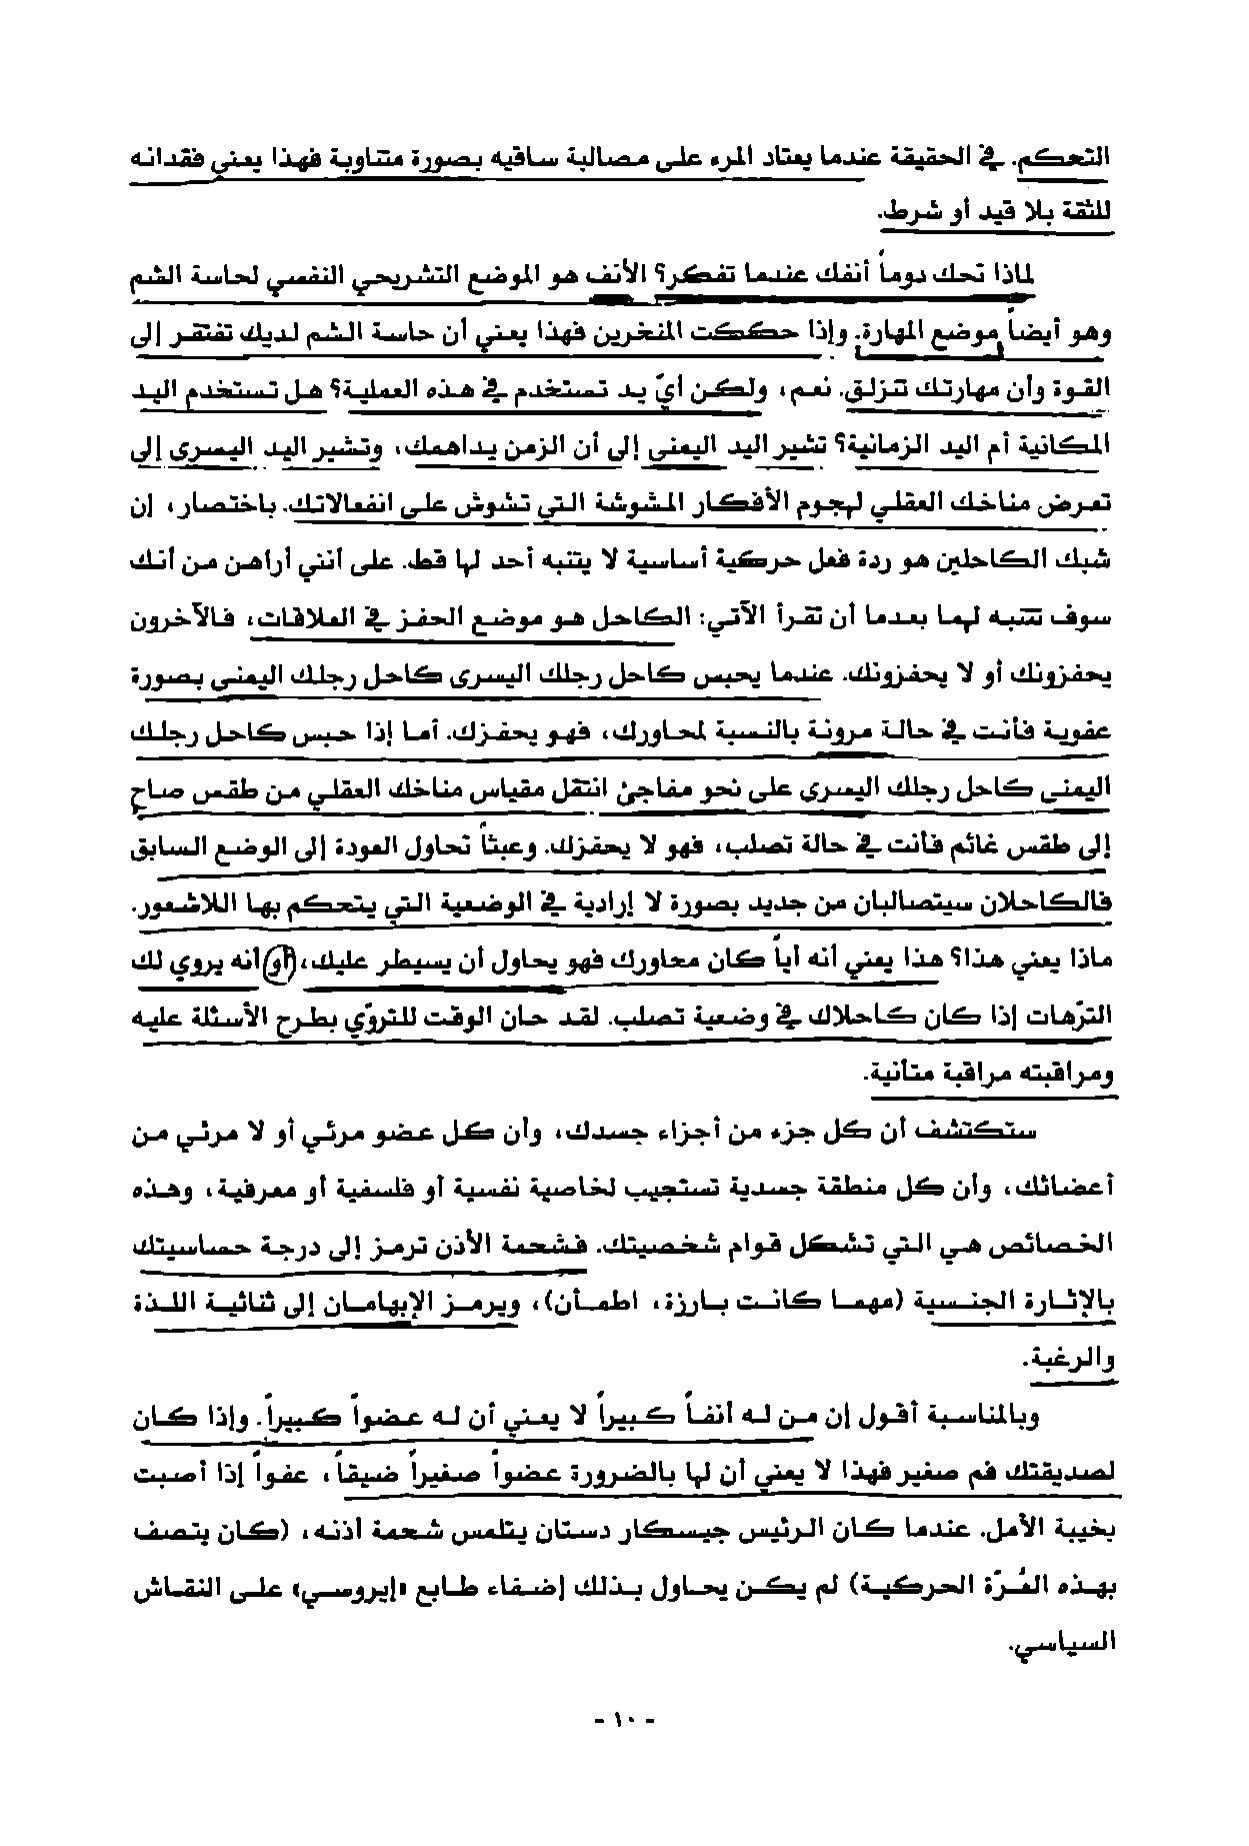 التحكم. في الحقيقة عندما يعتاد المرء على مصالبة ساقيه بصورة متناوبة فهذا يعني فقدانه
للثقة بلا قيد أو شرط.
لماذا تحك دوماً أنفك عندما تفكر؟ الأنف هو الموضع التشريحي النفسي لحاسة الشم
وهو أيضاً موضع المهارة. وإذا حككت المنخرين فهذا يعني أن حاسة الشم لديك تفتقر إلى
القوة وأن مهارتك تنزلق. نعم، ولكن أيّ يد تستخدم في هذه العملية؟ هل تستخدم اليد
المكانية أم اليد الزمانية؟ تشير اليد اليمنى إلى أن الزمن يداهمك، وتشير اليد اليسرى إلى
تعرض مناخك العقلي لهجوم الأفكار المشوشة التي تشوش على انفعالاتك. باختصار، إن
شبك الكاحلين هو ردة فعل حركية أساسية لا ينتبه أحد لها قط. على أنني أراهن من أنك
سوف تنتبه لهما بعدما أن تقرأ الآتي: الكاحل هو موضع الحفز في العلاقات، فالآخرون
يحفزونك أو لا يحفزونك. عندما يحبس كاحل رجلك اليسرى كاحل رجلك اليمنى بصورة
عفوية فأنت في حالة مرونة بالنسبة لمحاورك، فهو يحفزك. أما إذا حبس كاحل رجلك
اليمنى كاحل رجلك اليسرى على نحو مفاجئ انتقل مقياس مناخك العقلي من طقس صاح
إلى طقس غائم فأنت في حالة تصلب، فهو لا يحفزك. وعبثاً تحاول العودة إلى الوضع السابق
فالكاحلان سيتصالبان من جديد بصورة لا إرادية في الوضعية التي يتحكم بها اللاشعور.
ماذا يعني هذا؟ هذا يعني أنه أياً كان محاورك فهو يحاول أن يسيطر عليك، أو أنه يروي لك
الترّهات إذا كان كاحلاك في وضعية تصلب. لقد حان الوقت للتروّي بطرح الأسئلة عليه
ومراقبته مراقبة متأنية.
ستكتشف أن كل جزء من أجزاء جسدك، وأن كل عضو مرئي أو لا مرئي من
أعضائك، وأن كل منطقة جسدية تستجيب لخاصية نفسية أو فلسفية أو معرفية، وهذه
الخصائص هي التي تشكل قوام شخصيتك. فشحمة الأذن ترمز إلى درجة حساسيتك
بالإثارة الجنسية (مهما كانت بارزة، اطمأن)، ويرمز الإبهامان إلى ثنائية اللذة
والرغبة.
وبالمناسبة أقول إن من له أنفاً كبيراً لا يعني أن له عضواً كبيراً. وإذا كان
لصديقتك فم صغير فهذا لا يعني أن لها بالضرورة عضواً صغيراً ضيقاً، عفواً إذا أصبت
بخيبة الأمل. عندما كان الرئيس جيسكار دستان يتلمس شحمة أذنه، (كان يتصف
بهذه العُرّة الحركية) لم يكن يحاول بذلك إضفاء طابع «إيروسي» على النقاش
السياسي.
- ١٠ -